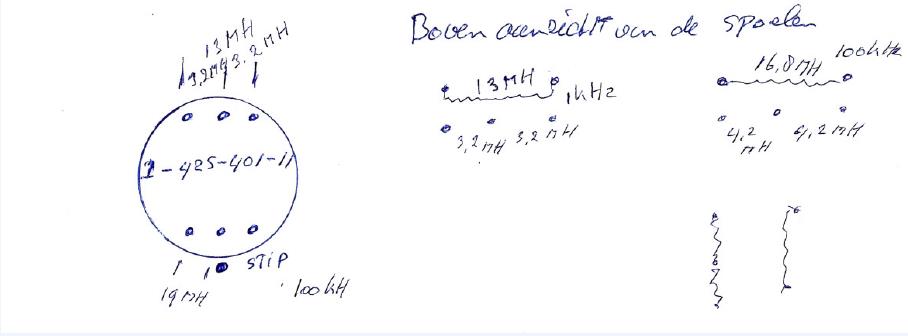 Boven aanzicht van de spoelen
13 MH
3,2MH 3.2 MH
1-425-401-11
STIP
19 MH
100 kH
13 MH
1 kHz
3,2 MH 3,2 MH
16,8 MH 100 kHz
4,2 MH 4,2 MH